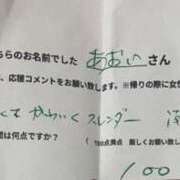 ちらのお名前でした あおい さん
、応援コメントをお願い致します。※帰りの際に女性
くて かわいく スレンダー
間は何点ですか？ (100点満点 厳しくお願い致し
100